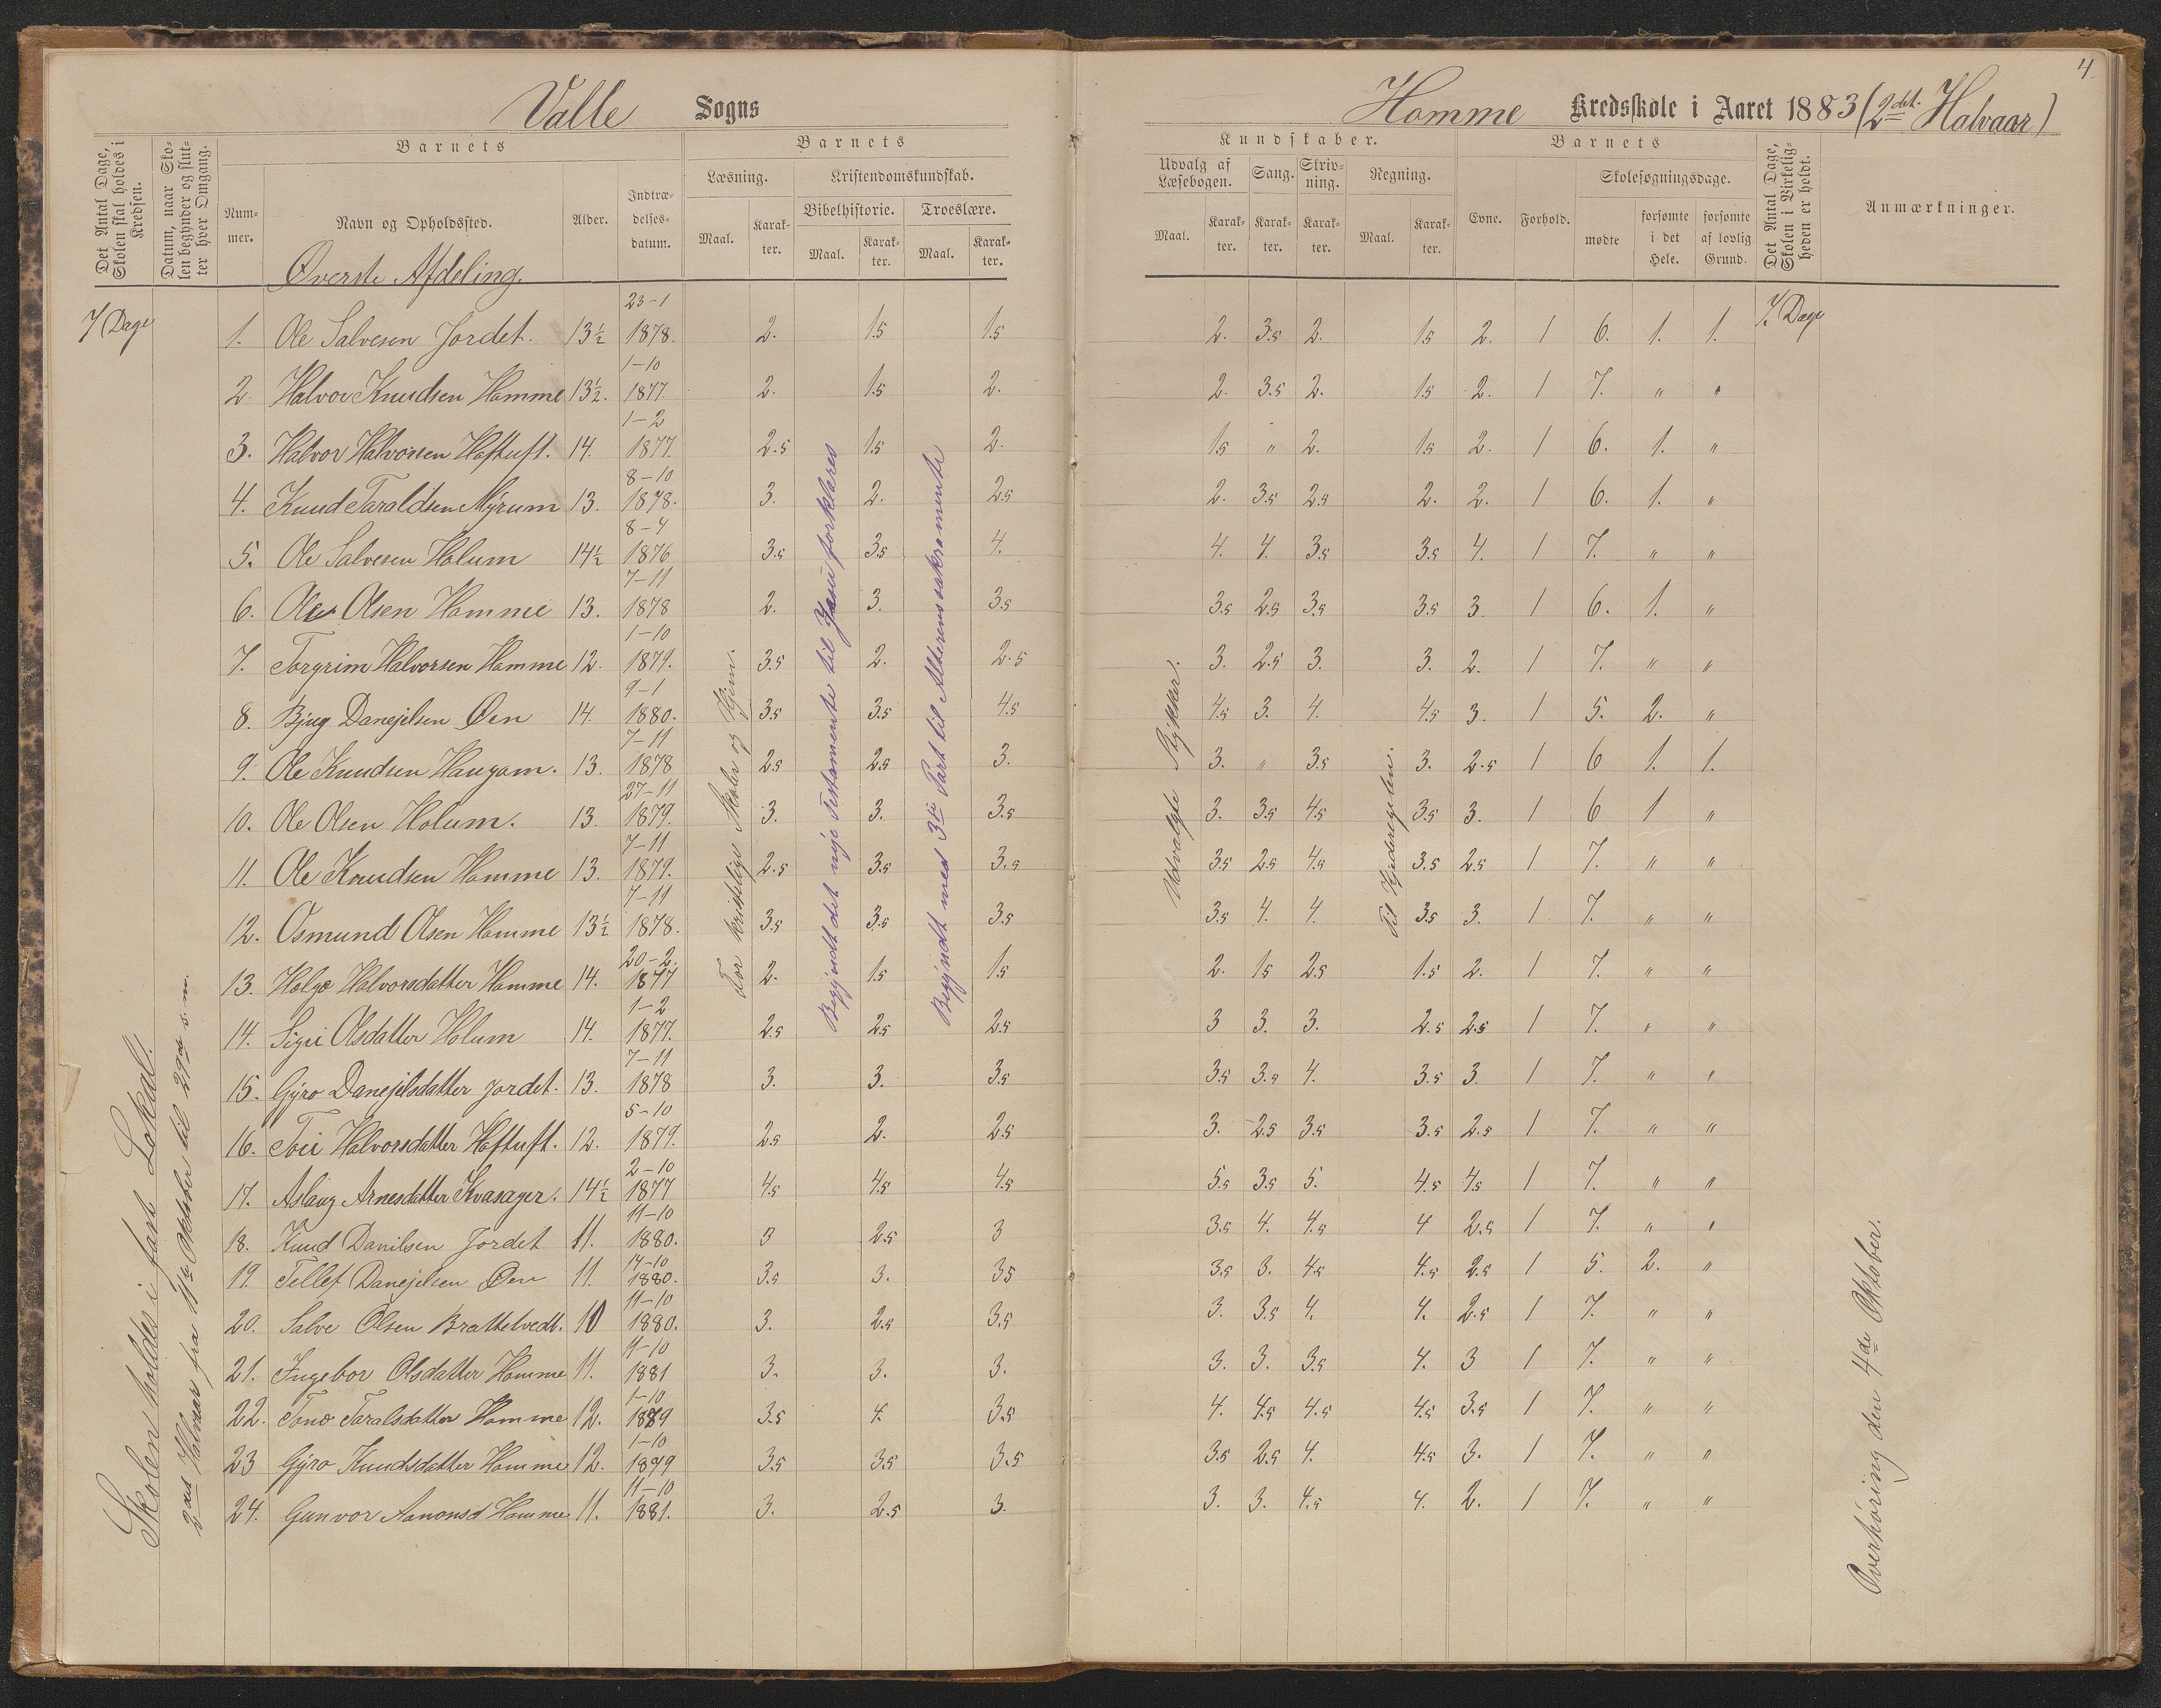 4.
Valle Sogns
Homme Kredsskole i Aaret 1883 (2det Halvaar)
Det Antal Dage, Skolen skal holdes i Kredsen.
Datum, naar Skolen begynder og slutter hver Omgang.
Barnets
Nummer.
Navn og Opholdssted.
Alder.
Indtrædelsesdatum.
Barnets
Læsning.
Kristendomskundskab.
Bibelhistorie. Troeslære.
Maal. Karakter. Maal. Karakter. Maal. Karakter.
Kundskaber.
Udvalg af Læsebogen. Sang. Skrivning. Regning.
Maal. Karakter. Karakter. Karakter. Maal. Karakter.
Barnets
Evne. Forhold.
Skolesøgningsdage.
mødte forsømte i det Hele. forsømte af lovlig Grund.
Det Antal Dage, Skolen i Virkeligheden er holdt.
Anmærkninger.
Øverste Afdeling.
7 Dage
7. Dage
1. Ole Salvesen Jordet. 13½ 23-1 1878. 2. 1.5 1.5 2. 3.5 2. 1.5 2. 1 6. 1. 1.
2. Halvor Knudsen Homme 13½. 1-10 1877. 2. 1.5 2. 2. 3.5 2. 1.5 2. 1 7. " "
3. Halvor Halvorsen Haftuft. 14. 1-2 1877. 2.5 1.5 2. 1.5 " 2. 1.5 2. 1 6. 1. "
4. Knud Taraldsen Myrum 13. 8-10 1878. 3. 2. 2.5 2. 3.5 2.5 2. 2. 1 6. 1. "
5. Ole Salvesen Holum 14½ 8-4 1876 3.5 3.5 4. 4. 4. 3.5 3.5 4. 1 7. " "
6. Ole Olsen Homme 13. 7-11 1878 2. 3. 3.5 3.5 2.5 3.5 3.5 3. 1 6. 1. "
7. Torgrim Halvorsen Homme 12. 1-10 1879. 3.5 2. 2.5 3. 2.5 3. 3. 2. 1 7. " "
8. Bjug Danejelsen Øen 14. 9-1 1880. 3.5 3.5 4.5 4.5 3. 4. 4.5 3. 1 5. 2. "
9. Ole Knudsen Haugam. 13. 7-11 1878 2.5 2.5 3. 3. " 3.5 3. 2.5 1 6 1. 1.
10. Ole Olsen Holum. 13. 27-11 1879. 3. 3. 3.5 3. 3.5 4.5 3.5 3. 1 6 1 "
11. Ole Knudsen Homme 13. 7-11 1879. 2.5 3.5 3.5 3.5 2.5 4.5 3.5 2.5 1 7. " "
12. Osmund Olsen Homme 13½ 7-11 1878. 3.5 3.5 3.5 3.5 4. 4. 3.5 3. 1 7. " "
13. Helge Halvorsdatter Homme 14. 20-2. 1877 2. 1.5 1.5 2. 1.5 2.5 1.5 2. 1 7. " "
14. Sigri Olsdatter Holum 14. 1-2 1877. 2.5 2.5 2.5 3 3. 3. 2.5 2.5 1 7. " "
15. Gyro Danejelsdatter Jordet. 13. 7-11 1878 3. 3. 3.5 3.5 3.5 4. 3.5 3. 1 7. " "
16. Toii Halvorsdatter Haftuft. 12. 5-10 1879. 2.5 2. 2.5 3. 2.5 3.5 3.5 2.5 1 7. " "
17. Aslaug Arnesdatter Kvasager. 14½ 2-10 1877 4.5 4.5 4.5 5.5 3.5 5. 4.5 4.5 1 7. " "
18. Knud Danilsen Jordet 11. 11-10 1880. 3 2.5 3 3.5 4. 4.5 4 2.5 1 7. " "
19. Tellef Danejelsen Øen 11. 14-10 1880. 3.5 3. 3.5 3.5 3. 4.5 4.5 2.5 1 5. 2. "
20. Salve Olsen Brattelvedt. 10 11-10 1880. 3. 2.5 3.5 3. 3.5 4. 4. 2.5 1 7. " "
21. Ingebor Olsdatter Homme 11. 4-10 1881 3. 3. 3. 3. 3. 3.5 4. 3 1 7. " "
22. Tone Taralsdatter Homme 12. 1-10 1879 3.5 4. 3.5 4. 4.5 4.5 4.5 3.5 1 7. " "
23 Gyro Knudsdatter Homme 12. 1-10 1879 3.5 3.5 3.5 3.5 2.5 4. 4.5 3. 1 7. " "
24. Gunvor Aanonsd Homme 11. 11-10 1881. 3. 2.5 3. 3. 3. 4.5 4. 2. 1 7. " "
Skolen holdes i fast Lokal.
2det Halvaar fra 11te Oktober til 29de s. m.
For kristelige Skoler og Hjem.
Begyndt det nye Testamente til Jesu forklares
Begyndt med 3die Part til Altarens sakramente
Udvalgte Stykker.
Til Kjederegelen.
Overhøring den 4de Oktober.